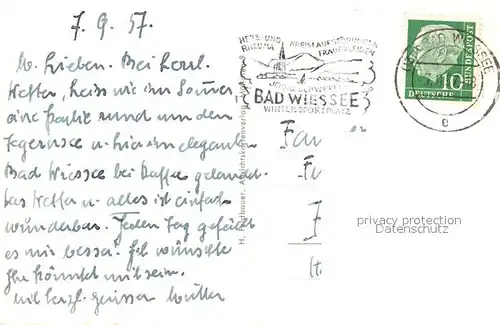 7. 9. 57.
M. Lieben. Bei herrl.
Wetter, heiss wie im Sommer,
eine Partie rund um den
Tegernsee u. hier im eleganten
Bad Wiessee bei Kaffee gelandet.
Das Wetter u. alles ist einfach
wunderbar. Jeden Tag gefällt
es mir besser. Ich wünschte
Ihr könntet mit sein.
Mit herzl. Grüssen Mutter
HERZ- UND
RHEUMA
KREISLAUFSTÖRUNGEN
FRAUENLEIDEN
JOD-SCHWEFEL
BAD WIESSEE
WINTERSPORTPLATZ
BAD WIESSEE
e
10
DEUTSCHE
BUNDESPOST
Ansichtskartenverlag
privacy protection
Datenschutz